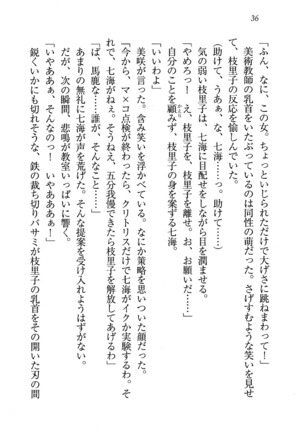 36
「ふん、なに、この女。ちょっといじられただけで大げさに跳ねまわって！」
美術教師の乳首をいたぶっているのは同性の萌だった。さげすむような笑いを見せ
て、枝里子の反応を愉しんでいた。
「助けて、うぁっ、な、七海……っ。助けて……」
気の弱い枝里子は、七海に目配せをしながら目を潤ませる。
「やめろっ！　え、枝里子を、枝里子を離せ。お、お願いだ……」
自分のことを顧みず、枝里子の身を案ずる七海。
「いいわよ」
美咲が言った。含み笑いを浮かべている。なにか策略を思いついた顔だった。
「今から、マ×コ点検が終わったら、クリトリスだけで七海がイクか実験するわ。そ
れで、七海がそんなのイヤって、ええっ、五分我慢できたら枝里子を解放してあげるわ」
「ば、馬鹿な……誰が、そんなこと……」
あまりの無礼に七海が声を荒げた。そんな提案を受け入れようはずがない。
だが、次の瞬間、悲鳴が教室いっぱいに響く。
「いやああっ、そんなのっ！　いやああぁっ！」
鋭くいかにも切れそうな、鉄の裁ち切りバサミが枝里子の乳首をその開いた刃の間